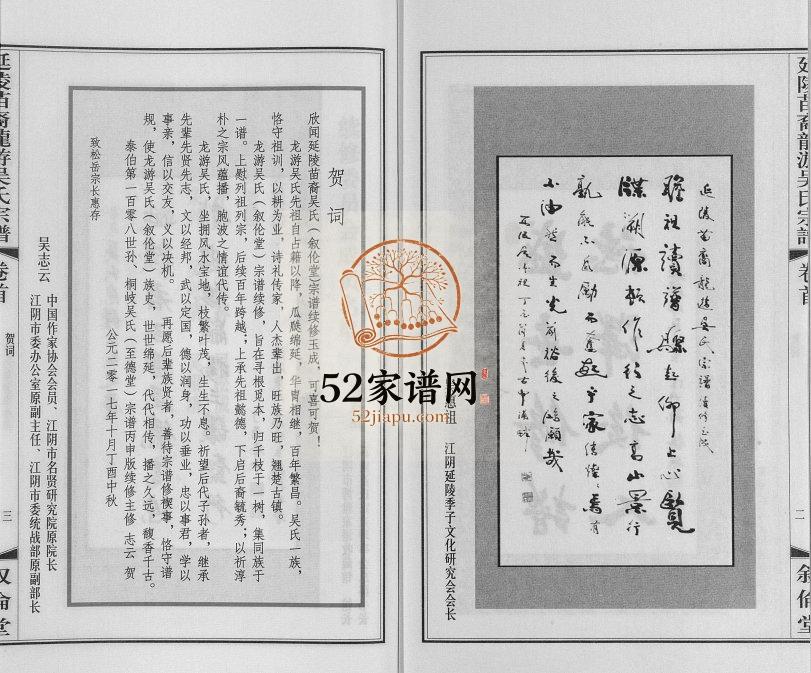 延陵苗裔龍游吴氏宗譜
卷首
二
叙倫堂
延陵苗裔龍游吴氏宗譜續修玉成
瞻祖讀譜
溯源
之志高山景行
江阴延陵季子文化研究会会长
贺词
欣闻延陵苗裔吴氏（叙伦堂）宗谱续修玉成，可喜可贺！
龙游吴氏先祖自占籍以降，瓜瓞绵延，华胄相继，百年繁昌。吴氏一族，
恪守祖训，以耕为业，诗礼传家，人杰辈出，旺族乃旺，翘楚古镇。
龙游吴氏（叙伦堂）宗谱续修，旨在寻根觅本，归千枝于一树，集同族于
一谱。上慰列祖列宗，后续百年跨越；上承先祖懿德，下启后裔毓秀；以祈淳
朴之宗风蕴播，胞波之情谊代传。
龙游吴氏，坐拥风水宝地，枝繁叶茂，生生不息。祈望后代子孙者，继承
先辈先贤先志，文以经邦，武以定国，德以润身，功以垂业，忠以事君，学以
事亲，信以交友，义以决机。 再愿后辈族贤者，善待宗谱修楔事，恪守谱
规，使龙游吴氏（叙伦堂）族史，世世绵延，代代相传，播之久远，馥香千古。
泰伯第一百零八世孙、桐岐吴氏（至德堂）宗谱丙申版续修主修 志云 贺
公元二零一七年十月丁酉中秋
致松岳宗长惠存
吴志云
中国作家协会会员、江阴市名贤研究院原院长
江阴市委办公室原副主任、江阴市委统战部原副部长
延陵苗裔龍游吴氏宗譜
卷首
贺词
三
叙倫堂
52家谱网
52jiapu.com